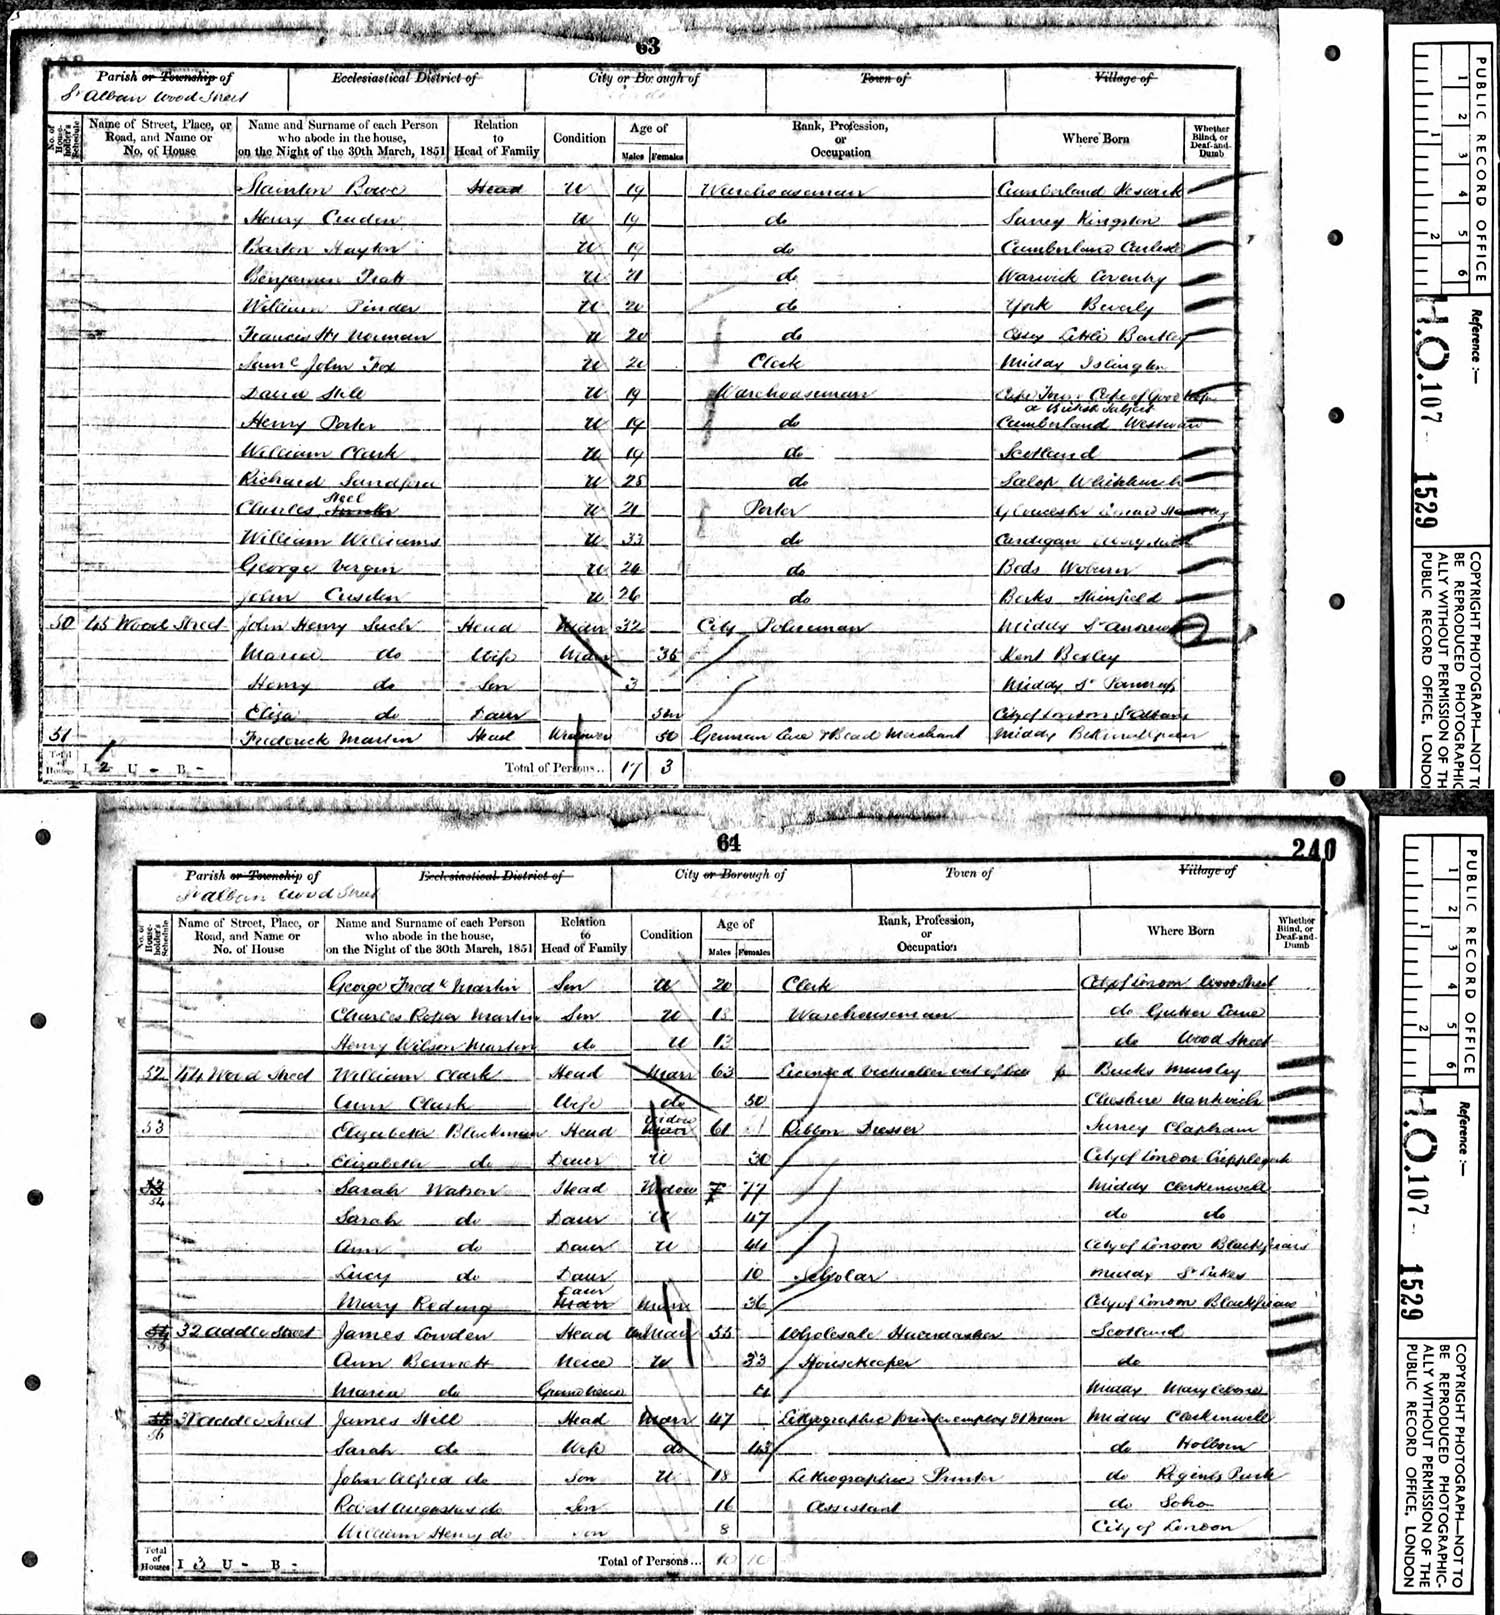 63
Parish or Township of
Ecclesiastical District of
City or Borough of
Town of
Village of
St Alban Wood Street
No. of House-holder's Schedule
Name of Street, Place, or Road, and Name or No. of House
Name and Surname of each Person who abode in the house, on the Night of the 30th March, 1851
Relation to Head of Family
Condition
Age of
Males Females
Rank, Profession, or Occupation
Where Born
Whether Blind, or Deaf-and-Dumb
Stainton Head U 19 Warehouseman Cumberland
Henry U 19 do Surrey Kingston
Barton Hayton U 19 do Cumberland
Benjamin Pratt U 21 do Warwick Coventry
William Pinder U 20 do York Beverly
Francis Hy Norman U 20 do Essex Little Bentley
John Fox U Clerk Middx Islington
David Still U 19 Warehouseman Cape Town Cape of Good Hope
a British Subject
Henry Porter U 19 do Cumberland
William Clark U 19 do Scotland
Richard U 25 do Salop Whitchurch
Charles U 21 Porter Gloucester
William Williams U 33 do Cardigan
George Virgin U do Beds Woburn
John U 26 do Berks Shinfield
50 45 Wood Street John Henry Head Marr 32 City Policeman Middx St Andrews
Maria do Wife Marr 36 Kent Bexley
Henry do Son 3 Middx St Pancras
Eliza do Daur City of London St Albans
51 Frederick Martin Head Widower 50 German & Bead Merchant Middx Bethnal Green
Total of Houses I 2 U - B - Total of Persons.. 17 3
PUBLIC RECORD OFFICE
1 2 3 4 5 6
1 2
Reference :—
H.O. 107
1529
COPYRIGHT PHOTOGRAPH—NOT TO
BE REPRODUCED PHOTOGRAPHIC
ALLY WITHOUT PERMISSION OF TH
PUBLIC RECORD OFFICE, LONDON
64
240
Parish or Township of
Ecclesiastical District of
City or Borough of
Town of
Village of
St Alban Wood Street
No. of House-holder's Schedule
Name of Street, Place, or Road, and Name or No. of House
Name and Surname of each Person who abode in the house, on the Night of the 30th March, 1851
Relation to Head of Family
Condition
Age of
Males Females
Rank, Profession, or Occupation
Where Born
Whether Blind, or Deaf-and-Dumb
George Fredk Martin Son U 20 Clerk City of London Wood Street
Charles Roper Martin Son U 18 Warehouseman do Gutter Lane
Henry Wilson Martin do U 13 do Wood Street
52 44 Wood Street William Clark Head Marr 63 Licensed Victualler out of Bucks Mursley
Ann Clark Wife do 50 Cheshire Nantwich
53 Elizabeth Blackman Head Widow 61 Ribbon Dresser Surrey Clapham
Elizabeth do Daur U 30 City of London Cripplegate
54 Sarah Watson Head Widow 77 Middx Clerkenwell
Sarah do Daur U 47 do do
Ann do Daur U 44 City of London Blackfriars
Lucy do Daur 10 Scholar Middx St Lukes
Mary Reding Daur 36 City of London Blackfriars
32 Addle Street James Lowden Head 55 Wholesale Haberdasher Scotland
Ann Bennett Niece U 33 Housekeeper do
Maria do Grand niece Middx Marylebone
56 31 Addle Street James Hill Head Marr 47 Lithographic printer employ Middx Clerkenwell
Sarah do Wife do 43 do Holborn
John Alfred do Son U 18 Lithographic Printer do Regents Park
Robert Augustus do Son 16 Assistant do Soho
William Henry do Son 8 City of London
Total of Houses I 3 U - B - Total of Persons... 10 10
PUBLIC RECORD OFFICE
1 2 3 4 5 6
1 2
Reference :—
H.O. 107
1529
COPYRIGHT PHOTOGRAPH—NOT TO
BE REPRODUCED PHOTOGRAPHIC-
ALLY WITHOUT PERMISSION OF THE
PUBLIC RECORD OFFICE, LONDON